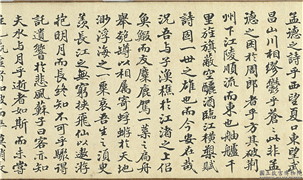 孟德之詩乎西望夏口東望武
昌山川相繆鬱乎蒼蒼此非孟
德之困於周郎者乎方其破荊
州下江陵順流而東也舳艫千
里旌旗蔽空釃酒臨江橫槊賦
詩固一世之雄也而今安在哉
況吾與子漁樵於江渚之上侶
魚鰕而友麋鹿駕一葉之扁舟
舉匏樽以相屬寄蜉蝣於天地
渺浮海之一粟哀吾生之須臾
羨長江之無窮挾飛仙以遨遊
抱明月而長終知不可乎驟得
託遺響於悲風蘇子曰客亦知
夫水與月乎逝者如斯而未嘗
國立故宮博物院